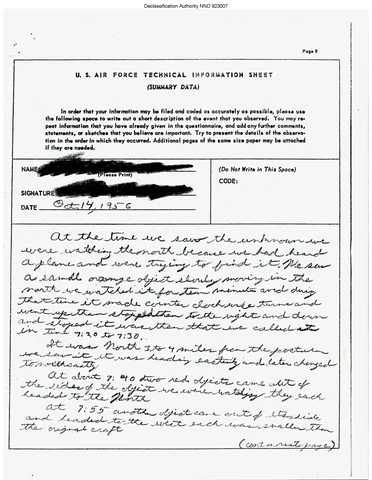 Declassification Authority NND 923007
Page 9
U. S. AIR FORCE TECHNICAL INFORMATION SHEET
(SUMMARY DATA)
In order that your information may be filed and coded as accurately as possible, please use
the following space to write out a short description of the event that you observed. You may re-
peat information that you have already given in the questionnaire, and add any further comments,
statements, or sketches that you believe are important. Try to present the details of the observa-
tion in the order in which they occurred. Additional pages of the same size paper may be attached
if they are needed.
NAME
(Please Print)
SIGNATURE
DATE Oct 14, 1956
(Do Not Write in This Space)
CODE:
At the time we saw the unknown we
were watching the north because we had heard
a plane and were trying to find it. We saw
a small orange object slowly moving in the
north we watched it for ten minutes and during
that time it made counter clockwise turns and
went up then to the right and down
and stoped it was then that we called
in time 7:20 to 7:30.
It was North 3 to 4 miles from the
we saw it it was heading easterly and later changed
to northeasterly
At about 7:40 two red objects came out of
the sides of the object we were watching they each
headed to the North
At 7:55 another object came out of its side
and headed to the west each was smaller than
the original craft
(cont on next page)